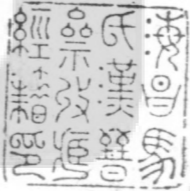 海昌馬
氏漢晉
齋攷
經籍印